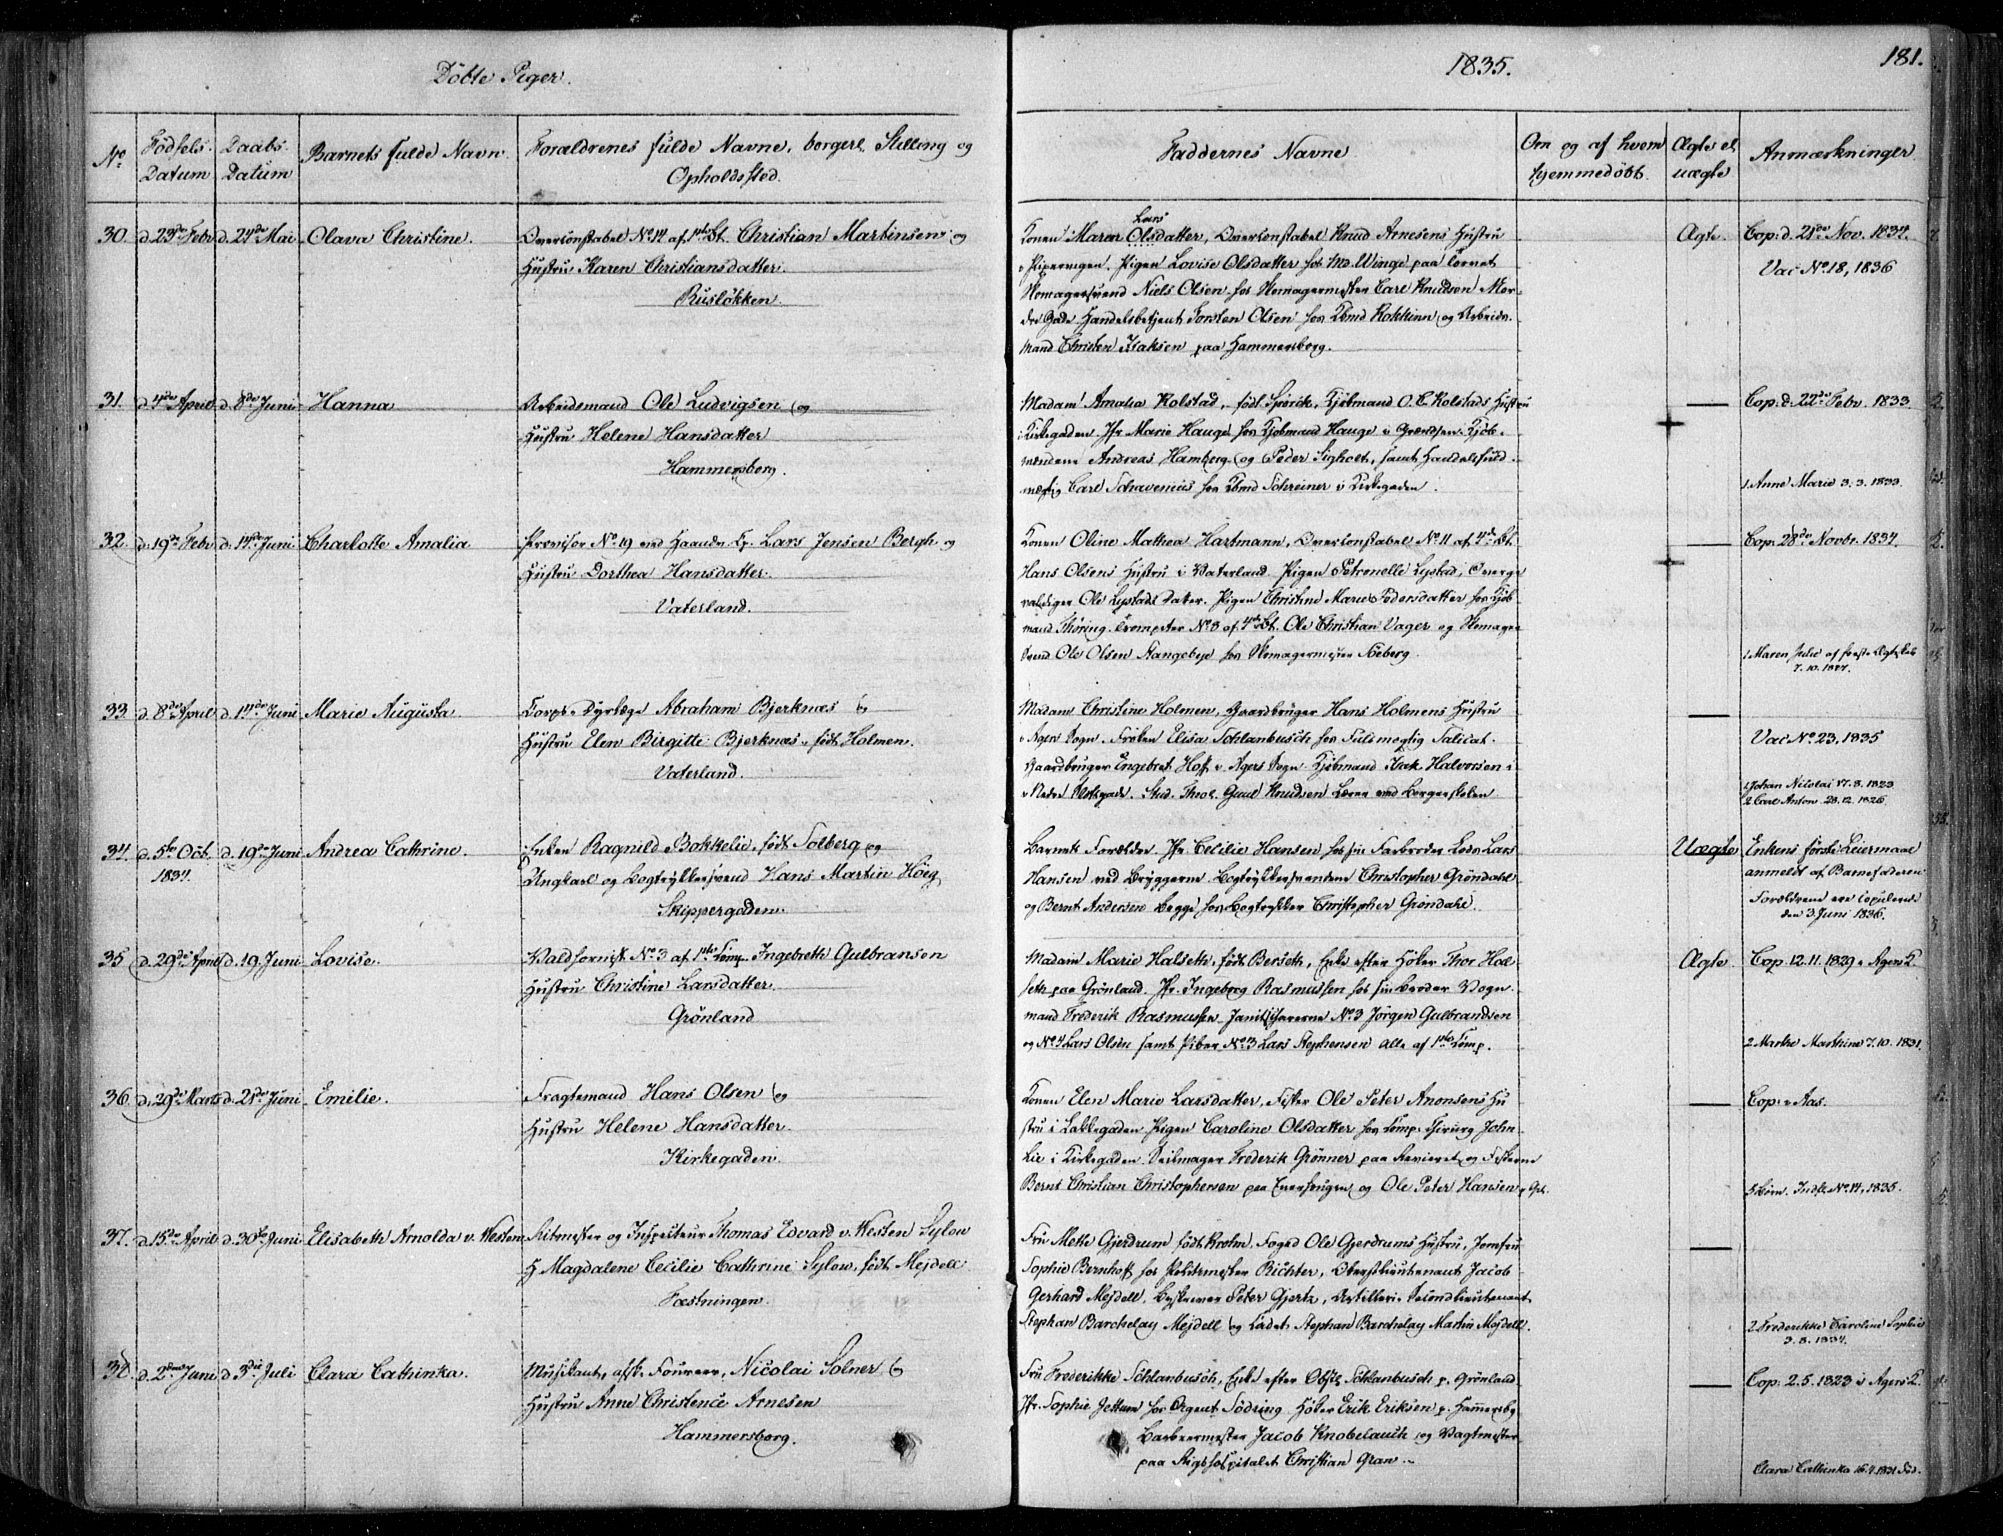 Döbte Piger.
1835.
181.
No
Födsels Datum
Daabs Datum
Barnets fulde Navn
Forældrenes fulde Navne, borgerl. Stilling og Opholdssted.
Faddernes Navne
Om og af hvem hjemmedöbt.
Ægte el. uægte
Anmærkninger
30. d. 23de Febr d. 24de Mai Olava Christine.
Overconstabel No 14 af 1ste Bt. Christian Martinsen og
Hustru Karen Christiansdatter.
Rusløkken.
Lars
Konen Maren Olsdatter, Overconstabel Knud Arnesens Hustru
i Pipervigen. Pigen Lovise Olsdatter hos Md. Winge paa Torvet
Skomagersvend Niels Olsen hos Skomagermester Carl Knudsen
Gade Handelsbetjent Torsten Olsen hos Kbmd Rokkinn og Arbeids-
mand Christen Isaksen paa Hammersborg.
Ægte.
Cop: d. 21de Nov. 1834.
Vac No 18, 1836
31. d. 4de April d. 8de Juni Hanna
Arbeidsmand Ole Ludvigsen og
Hustru Helene Hansdatter
Hammersborg.
Madam Amalia Kolstad, født Spörck, Kjöbmand O. C. Kolstads Hustru
i Kirkegaden. Jfr Marie Hauge hos Kjöbmand Hauge i Grændsen. Kjöb-
mændene Andreas Hamberg og Peder Sigholt, samt Handelsfuld-
mægtig Carl Schavenius hos Kbmd Schreiner i Kirkegaden.
—
Cop: d. 22de Febr. 1833.
1. Anne Marie 3. 3. 1833.
32. d. 19de Febr d. 14de Juni Charlotte Amalia
Provisor No 19 ved Haandv. Cp. Lars Jensen Bergh og
Hustru Dorthea Hansdatter.
Vaterland.
Konen Oline Mathea Hartmann, Overconstabel No 11 af 4de Bt.
Hans Olsens Hustru i Vaterland. Pigen Petronelle Lystad,
Ole Lystads Datter. Pigen Christine Marie Pedersdatter hos Kjöb-
mand Thøring. Trompeter No 3 af 4de Bt. Ole Christian Vager og Skomager
Svend Ole Olsen Stangebye hos Skomagermester Söeberg.
—
Cop: 28de Novbr. 1834.
1. Maren Julie af første Ægteskab
33. d. 8de April d. 14de Juni Marie Augusta
Corps-Dyrlæge Abraham Bjerknæs og
Hustru Elen Birgitte Bjerknæs, født Holmen.
Vaterland.
Madam Christine Holmen, Gaardbruger Hans Holmens Hustru
i Agers Sogn. Frøken Elisa Schlanbusch hos Fuldmægtig Salicat.
Gaardbruger Engebret Hoff i Agers Sogn. Kjöbmand Isak Halvorsen i
Nedre Slotsgade. Stud. Theol. Knudsen Lærer ved Borgerskolen.
—
Vac No 23, 1835
1. Johan Nicolai 17. 3. 1823
2. Carl Anton 28. 12. 1826.
34. d. 5te Octb. 1834. d. 19de Juni Andrea Cathrine.
Enken Ragnild Bakkelie, født Solberg og
Ungkarl og Bogtrykkersvend Hans Martin Höeg
Skippergaden.
Barnets Forældre. Jfr. Cecilie Hansen hos sin Farbroder Lods Lars
Hansen ved Bryggerne. Bogtrykkersvendene Christopher Gröndahl
og Bernt Andersen begge hos Bogtrykker Christopher Gröndahl.
Uægte
Enkens første Leiermaal
anmeldt af Barnefaderen.
Forældrene ere copulerede
den 3 Juni 1836.
35. d. 29de April d. 19 Juni Lovise.
Waldhornist No 3 af 1ste Comp. Ingebreth Gulbransen
Hustru Christine Larsdatter.
Grönland
Madam Marie Halseth, født Berseth, Enke efter Höker Thor Hal-
seth paa Grönland. Jfr. Ingeborg Rasmussen hos sin Broder Vogn-
mand Frederik Rasmussen. Janitscharerne No 3 Jörgen Gulbrandsen
og No 4 Lars Olsen samt Piber No 3 Lars Stephensen alle af 1ste Comp.
Ægte.
Cop. 12. 11. 1829 i Agers K.
2 Marthe Marthine 7. 10. 1831.
36. d. 29de Marts d. 21de Juni Emilie.
Fragtemand Hans Olsen og
Hustru Helene Hansdatter.
Kirkegaden.
Konen Elen Marie Larsdatter, Fisker Ole Peter Anonsens Hu-
stru i Lakkegaden. Pigen Caroline Olsdatter hos Comp. Chirurg John
Lie i Kirkegaden. Seilmager Frederik Grönner paa Revieret og Fiskerne
Bernt Christian Christophersen paa Enerhougen og Ole Peter Hansen
—
Cop: i Aas.
No 14, 1835.
37. d. 15de April d. 30te Juni Elisabeth Arnolda v. Westen
Ritmester og Inspecteur Thomas Edvard v. Westen Sylow
H. Magdalene Cecilie Cathrine Sylow, født Mejdell
Fæstningen.
Fru Mette Gjerdrum født Krohn, Foged Ole Gjerdrums Hustru, Jomfru
Sophie Bernhoft hos Politimester Richter, Oberstlieutenant Jacob
Gerhard Mejdell, Byskriver Peter Gjertz, Artilleri-Secondlieutenant
Stephan Barchelay Mejdell og Cadet Stephan Barchelay Martin Mejdell.
—
2 Frederikke Caroline Sophie
3. 8. 1834.
38. d. 2den Juni d. 3die Juli Clara Cathinka.
Musikant, afsk. Foureer, Nicolai Solner og
Hustru Anne Christence Arnesen
Hammersborg.
Fru Frederikke Schlanbusch, Enke efter Obstl. Schlanbusch p. Grönland
Jfr. Sophie Jettum hos Agent Södring. Höker Erik Eriksen p. Hammersbg
Barbeermester Jacob Knobelauch og Vagtmester
paa Rigshospitalet Christian Gran.
—
Cop: 2. 5. 1823 i Agers K.
Clara Cathinka 16. 4. 1831 död.